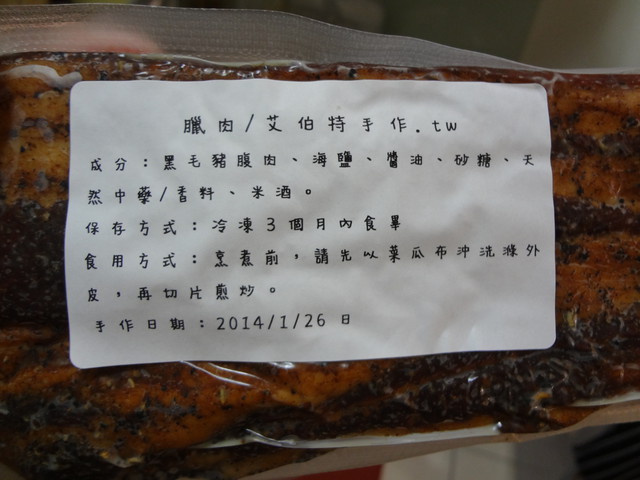 臘肉/艾伯特手作.tw
成分：黑毛豬腹肉、海鹽、醬油、砂糖、天
然中藥/香料、米酒。
保存方式：冷凍3個月內食畢
食用方式：烹煮前，請先以菜瓜布沖洗滌外
皮，再切片煎炒。
手作日期：2014/1/26 日